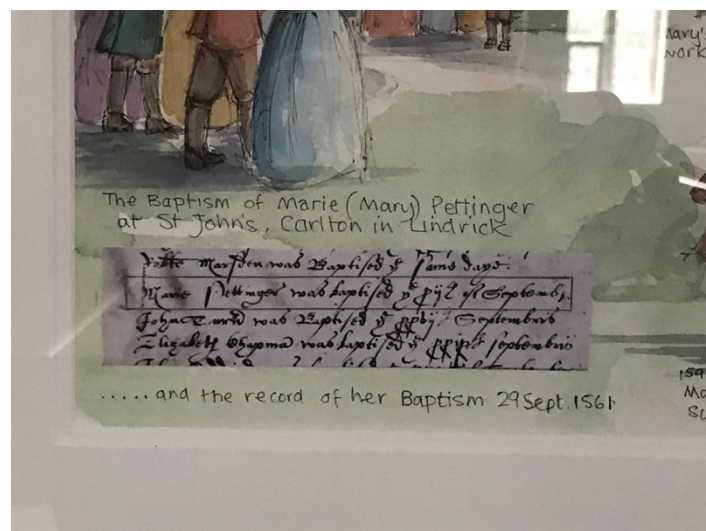 Mary's
work
The Baptism of Marie (Mary) Pettinger
at St John's, Carlton in Lindrick
Marsden was Baptised ye same daye.
Marie Pettinger was baptised ye of Septembr.
John was Baptised ye Septembris
Elizabeth Chapmā was baptised ye septembris
.....and the record of her Baptism 29 Sept. 1561
159
Ma
Su